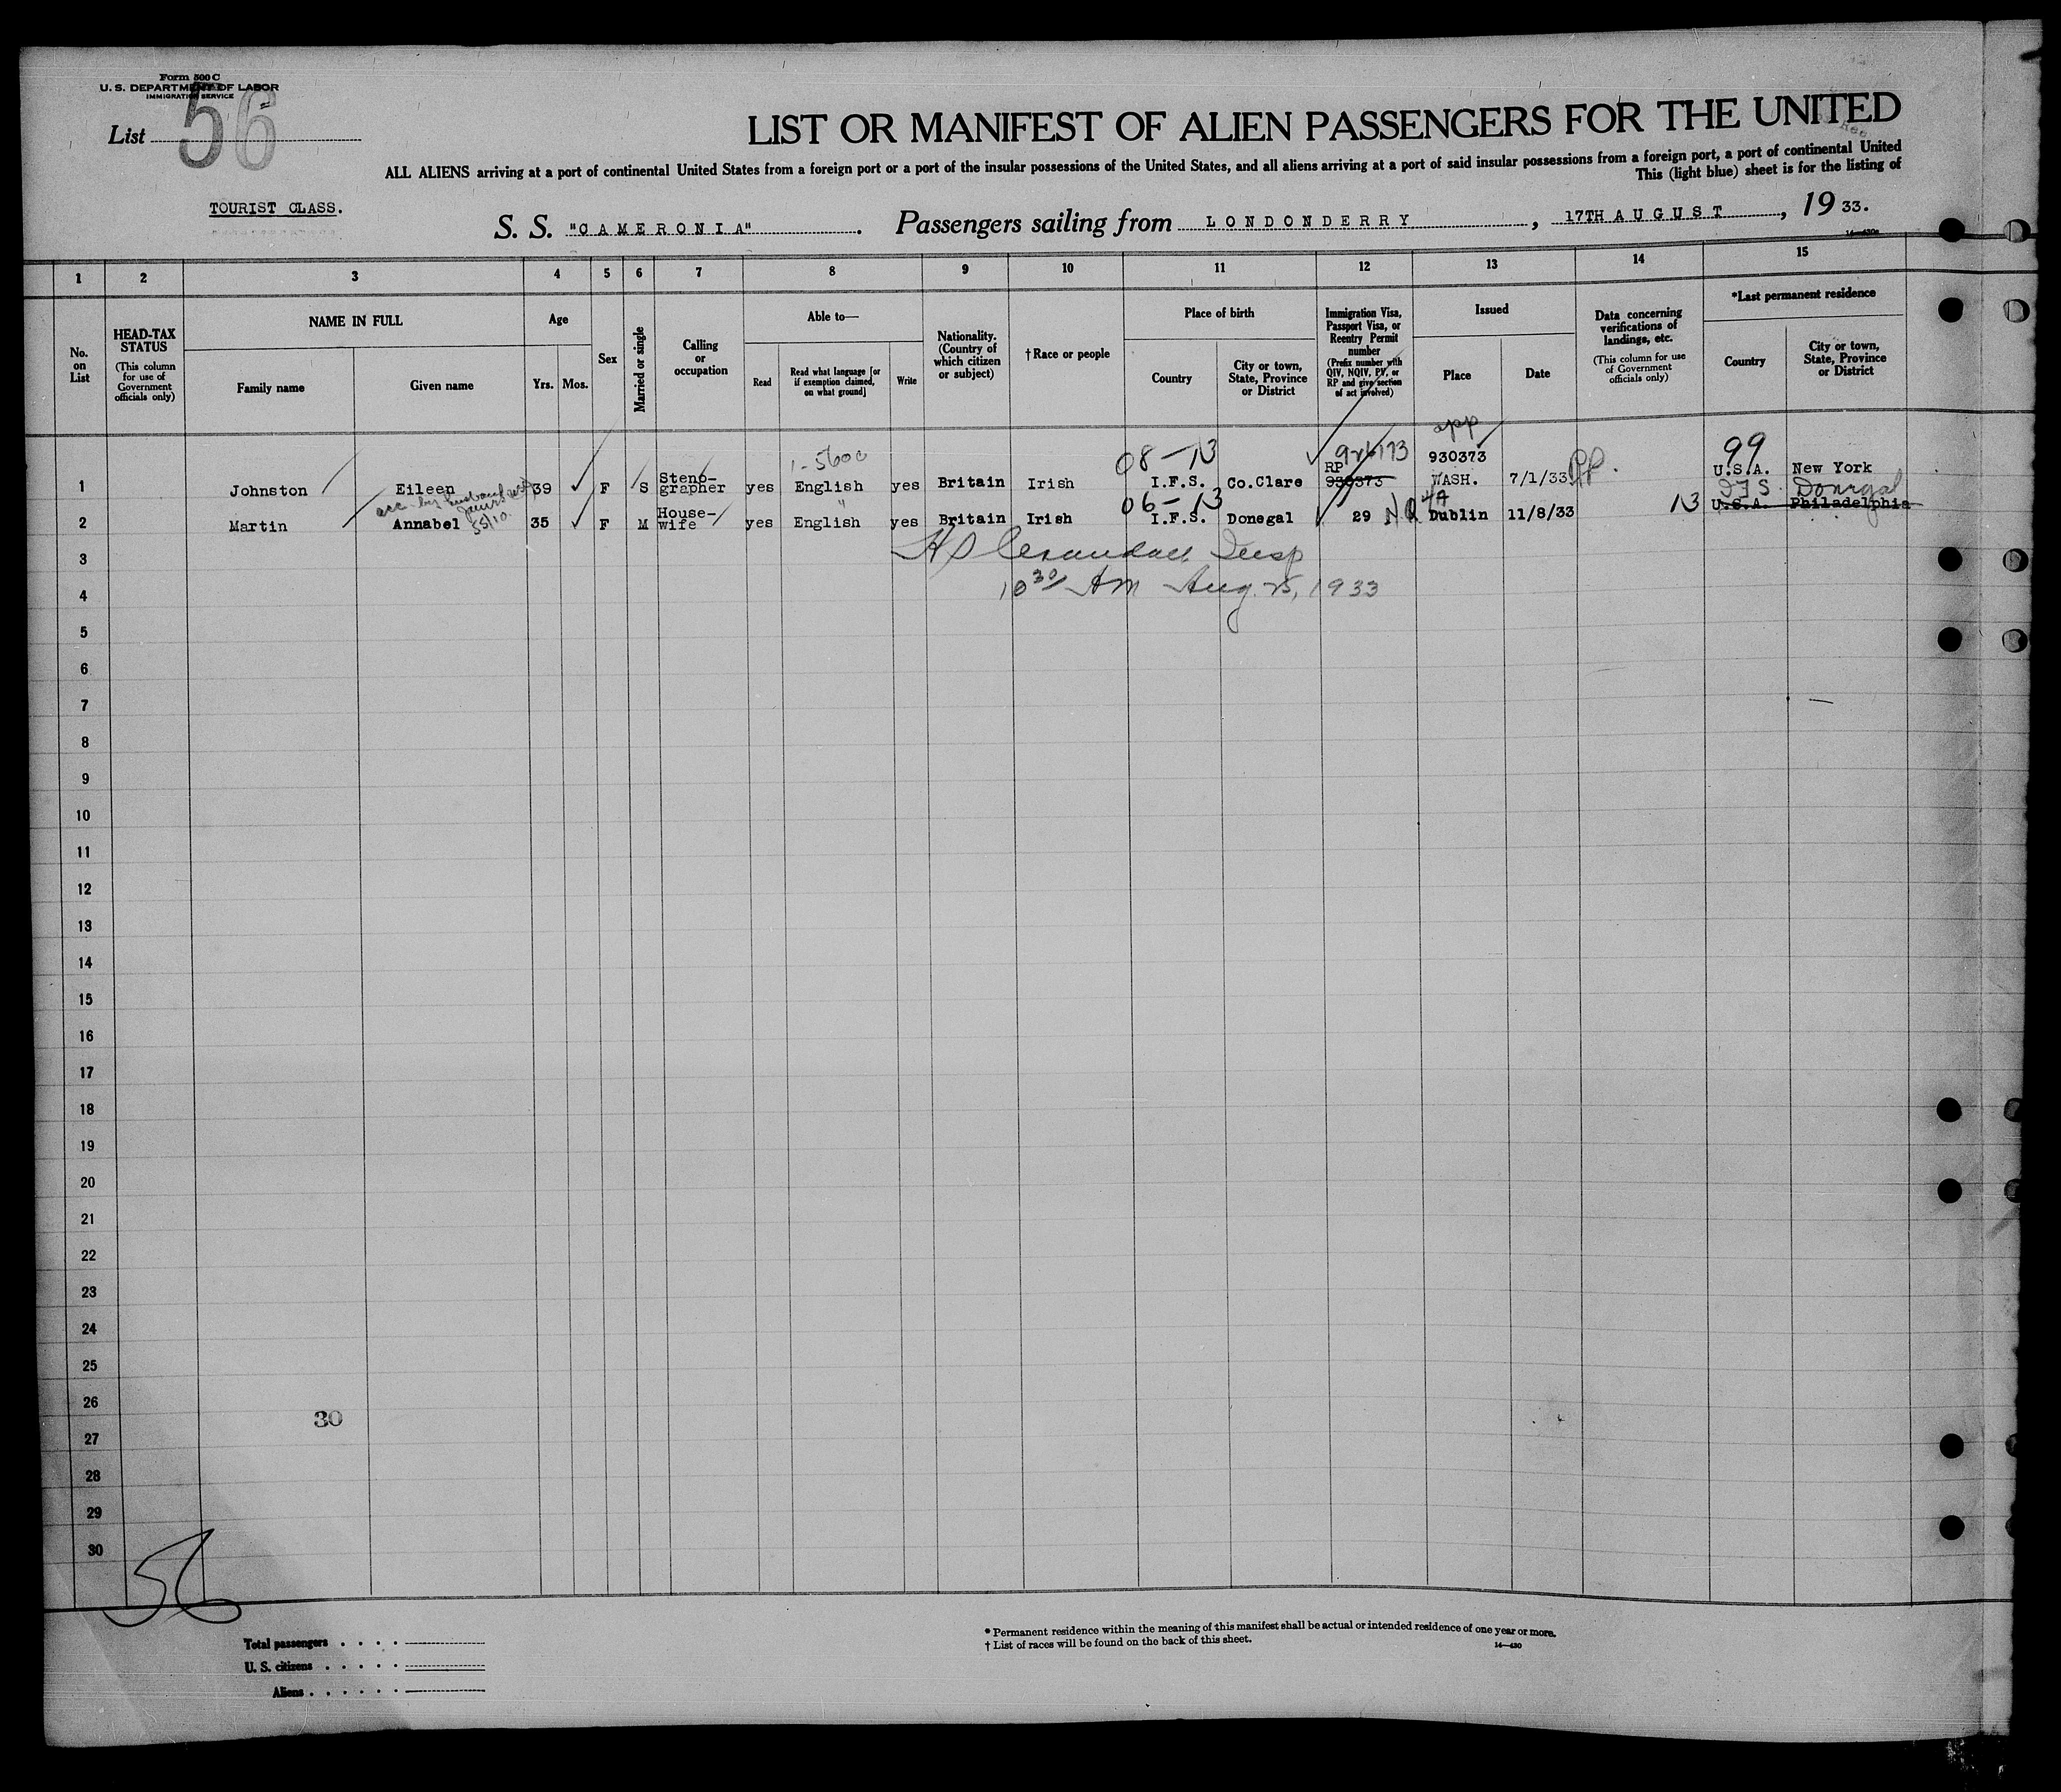 Form 500 C
U. S. DEPARTMENT OF LABOR
IMMIGRATION SERVICE
List 56
LIST OR MANIFEST OF ALIEN PASSENGERS FOR THE UNITED
ALL ALIENS arriving at a port of continental United States from a foreign port or a port of the insular possessions of the United States, and all aliens arriving at a port of said insular possessions from a foreign port, a port of continental United
This (light blue) sheet is for the listing of
TOURIST CLASS.
S. S. "CAMERONIA". Passengers sailing from LONDONDERRY, 17TH AUGUST, 1933.
1 2 3 4 5 6 7 8 9 10 11 12 13 14 15
No. on List
HEAD-TAX STATUS (This column for use of Government officials only)
NAME IN FULL
Family name
Given name
Age
Yrs.
Mos.
Sex
Married or single
Calling or occupation
Able to—
Read
Read what language [or if exemption claimed, on what ground]
Write
Nationality. (Country of which citizen or subject)
† Race or people
Place of birth
Country
City or town, State, Province or District
Immigration Visa, Passport Visa, or Reentry Permit number (Prefix number with QIV, NQIV, PV, or RP and give section of act involved)
Issued
Place
Date
Data concerning verifications of landings, etc. (This column for use of Government officials only)
*Last permanent residence
Country
City or town, State, Province or District
app
1-5600 08-13 930373 99
1 Johnston Eileen 39 F S Steno-grapher yes English yes Britain Irish I.F.S. Co.Clare RP 930373 WASH. 7/1/33 RP. U.S.A. New York
acc. by husband James
55/10
06-13 I.F.S. Donegal
2 Martin Annabel 35 F M House-wife yes English yes Britain Irish I.F.S. Donegal 29 NQ 4A Dublin 11/8/33 13 U.S.A. Philadelphia
3
10 30 AM Aug. 25, 1933
4
5
6
7
8
9
10
11
12
13
14
15
16
17
18
19
20
21
22
23
24
25
26
30
27
28
29
30
56
Total passengers
U. S. citizens
Aliens
* Permanent residence within the meaning of this manifest shall be actual or intended residence of one year or more.
† List of races will be found on the back of this sheet.
14—430